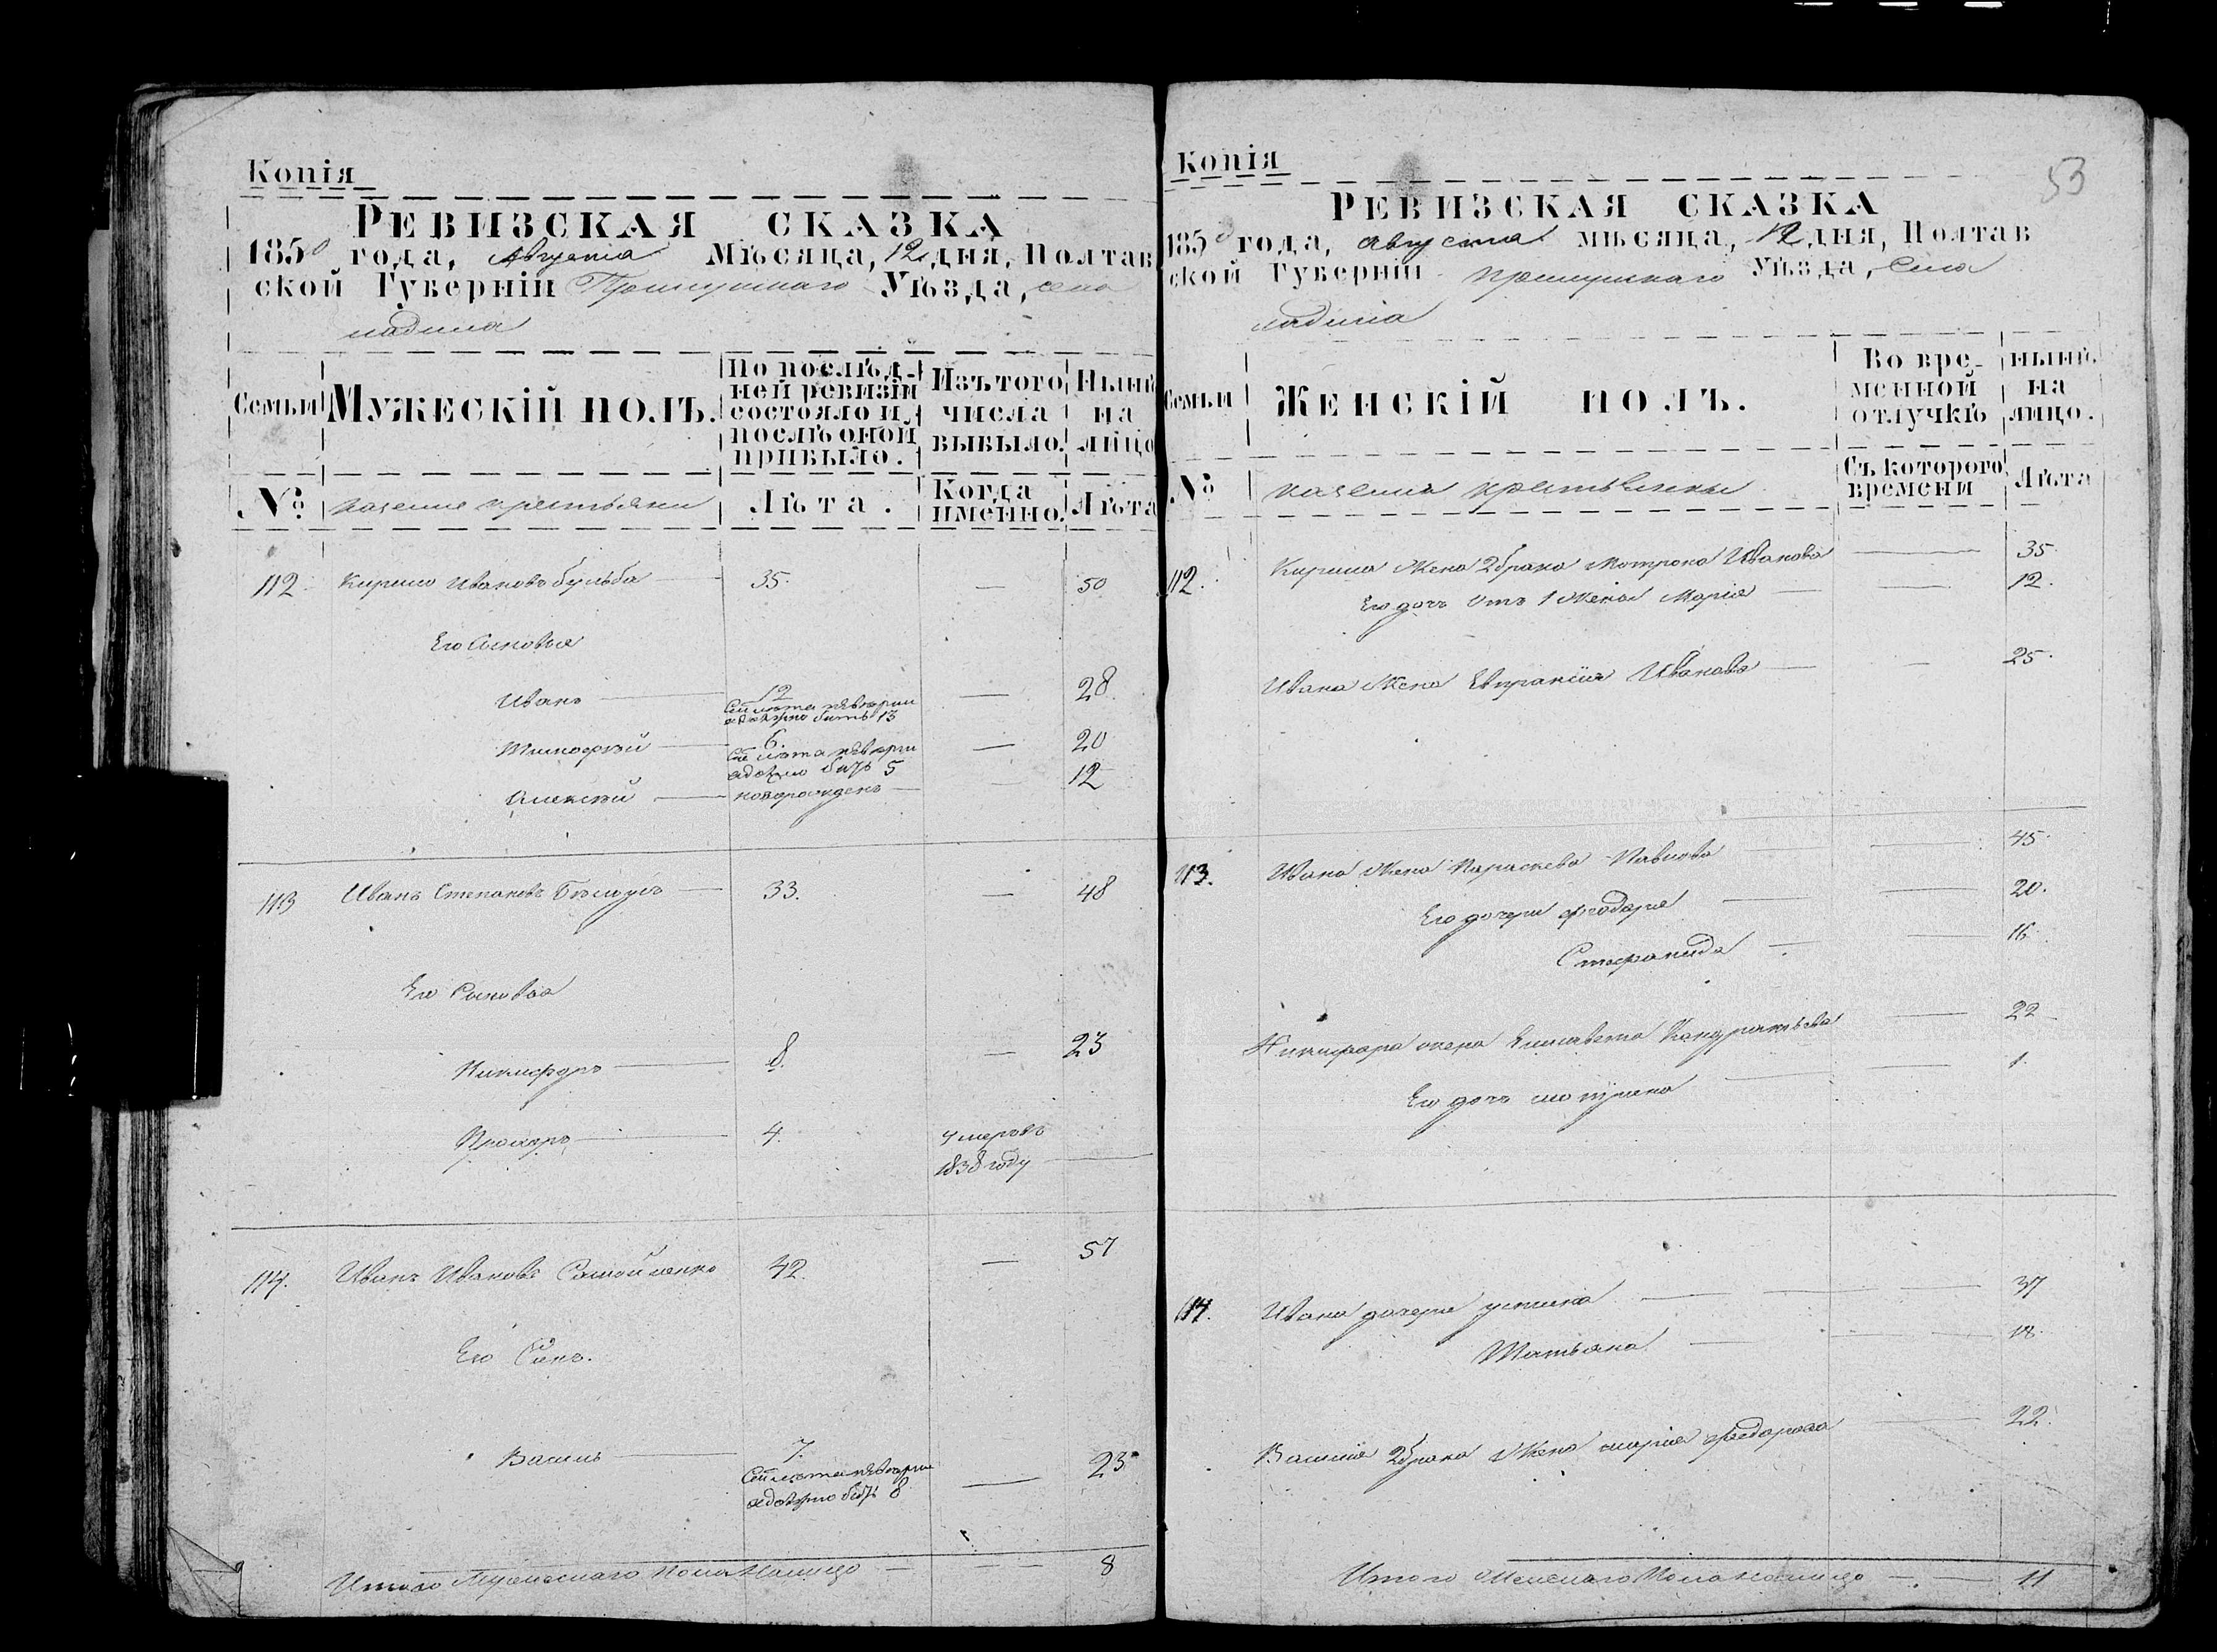 Копія
Ревизская сказка
1850 года, Августа Мѣсяца, 12 дня, Полтав
ской Губерніи Прилуцкаго Уѣзда, села
ладина
Семьи
Мужескій полъ.
По послѣд-
ней ревизіи
состояло и
послѣ оной
прибыло.
Изъ того
числа
выбыло.
Нынѣ
на
лицо
№
казенные крестьяне
Лѣта.
Когда
именно.
Лѣта
112 Кирило Ивановъ бульба 35. — 50
Его Сыновья
Иванъ 12 — 28
13
Тимофѣй 6. — 20
5
Алексѣй новорожденъ — 12
113 Иванъ Степановъ 33. — 48
Его Сыновья
Никифоръ 8. — 23
Прохоръ 4. умеръ въ
1838 году
114. Иванъ Ивановъ Самойленко 42. — 57
Его Синъ.
Василь 7. — 23
8
Итого Мужескаго Пола Налицо — 8
Копія
53
Ревизская сказка
1850 года, августа мѣсяца, 12 дня, Полтав
ской Губерніи прилуцкаго Уѣзда, Села
ладина
Семьи
Женскій полъ.
Во вре-
менной
отлучкѣ
нынѣ
на
лицо.
№
Съ которого
времени
Лѣта
112. Кирила Жена 2 брака Мотрона Иванова — 35.
Его дочь отъ 1 Жены Марія — 12.
Ивана Жена Евпраксия Иванова — 25.
113. Ивана Жена Параскева Павлова — 45.
Его дочери Феодория — 20.
Стефанида — 16.
Никифора жена Елисавета Кондратьева — 22
Его дочь — 1.
114. Ивана дочери устина — 37
Татьяна — 18.
Василія 2 брака Жена марія Федорова — 22.
Итого Женскаго Пола налицо — 11